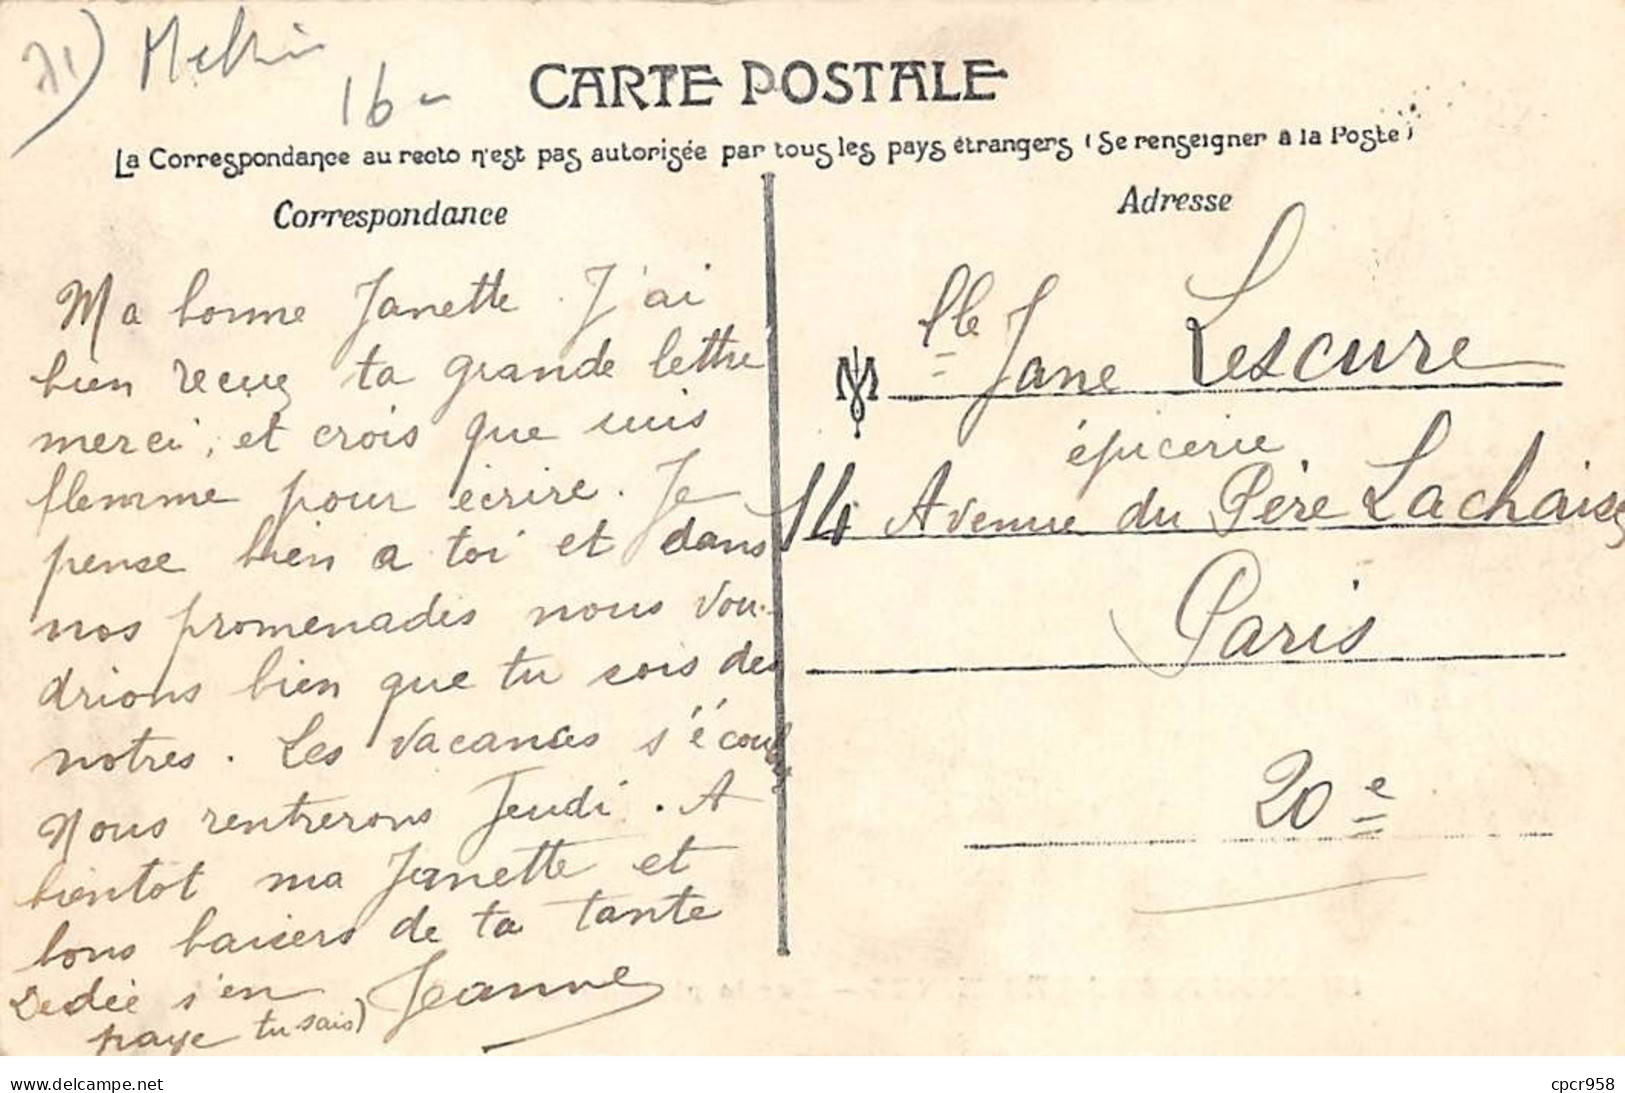 71)
16-
CARTE POSTALE
La Correspondance au recto n'est pas autorisée par tous les pays étrangers (Se renseigner à la Poste)
Correspondance
Adresse
Ma bonne Janette. J'ai
bien reçue ta grande lettre
merci, et crois que suis
flemme pour écrire. Je
pense bien a toi et dans
nos promenades nous vou-
drions bien que tu sois des
notres. Les vacances s'écoul
Nous rentrerons Jeudi. A
bientot ma Janette et
bons baisers de ta tante
Dédée s'en
paye tu sais)
Jeanne
Mlle Jane Lescure
épicerie
14 Avenue du Père Lachaise
Paris
20e
www.delcampe.net
cpcr958